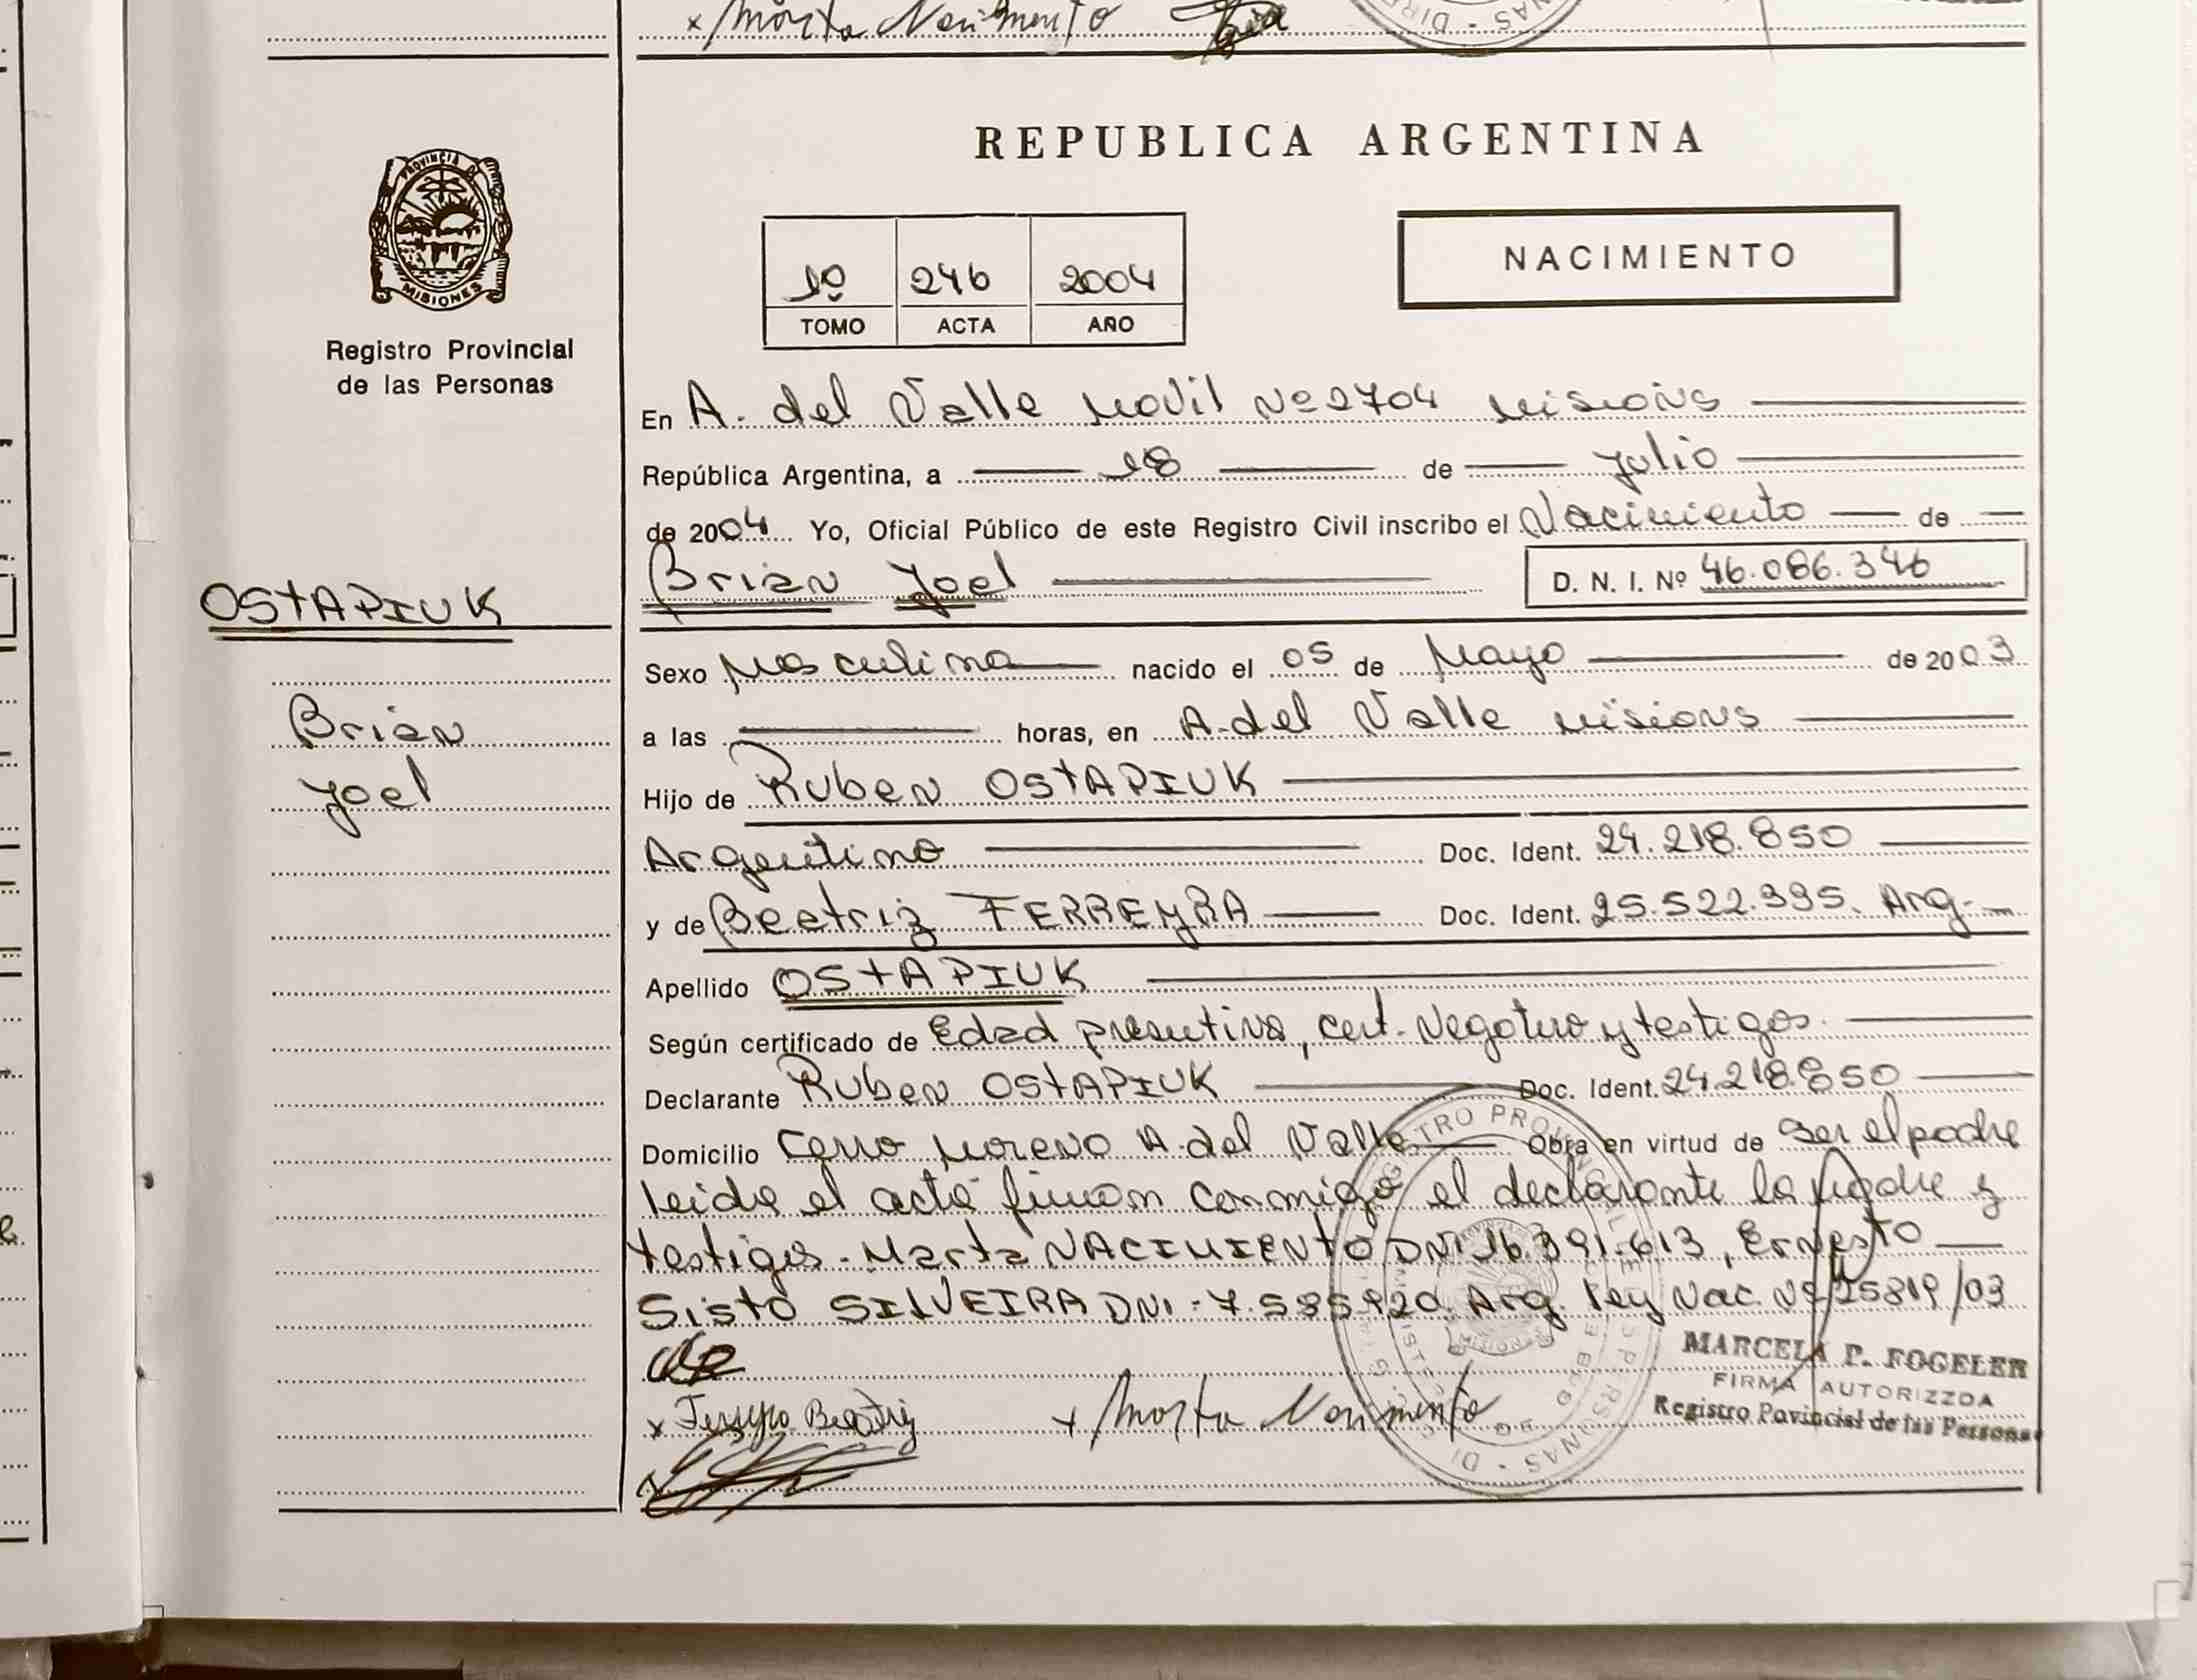 x Marta Nacimiento
REPUBLICA ARGENTINA
PROVINCIA DE
MISIONES
Registro Provincial
de las Personas
1º 246 2004
TOMO ACTA AÑO
NACIMIENTO
En A. del Valle Movil Nº 2704 Misions
República Argentina, a 18 de Julio
de 2004 Yo, Oficial Público de este Registro Civil inscribo el Nacimiento de
Brian Yoel D. N. I. Nº 46.086.346
OSTAPIUK
Brian
Yoel
Sexo Masculino nacido el 05 de Mayo de 2003
a las horas, en A. del Valle Misions
Hijo de Ruben OSTAPIUK
Argentino Doc. Ident. 24.218.850
y de Beatriz FERREYRA Doc. Ident. 25.522.395. Arg.
Apellido OSTAPIUK
Según certificado de Edad presuntiva, cert. Negativo y testigos.
Declarante Ruben OSTAPIUK Doc. Ident. 24.218.850
Domicilio Cerro Moreno A. del Valle Obra en virtud de ser el padre
leida el acta firman conmigo el declarante la madre y
testigos. Marta NACIMIENTO DNI 16.391.613, Ernesto
Sisto SILVEIRA DNI - Arg. ley Nac. Nº 25819/03
MARCELA P. FOGELER
FIRMA AUTORIZZDA
Registro Povincial de las Personas
x Ferreyra Beatriz x Marta Nacimiento